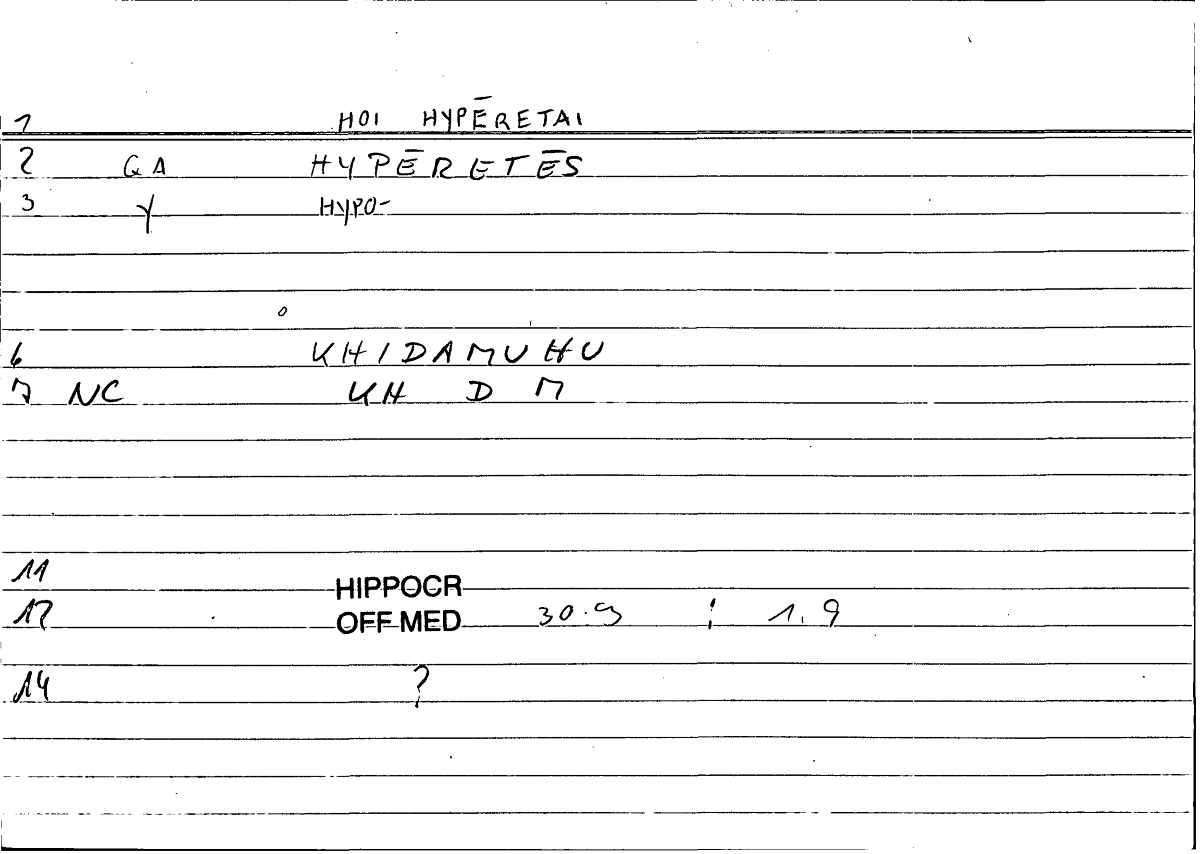 1 HOI HYPĒRETAI
2 GA HYPĒRETĒS
3 Y HYPO-
6 KHIDAMUHU
7 NC KH D M
11 HIPPOCR
12 OFF MED 30.9 ; 1.9
14 ?